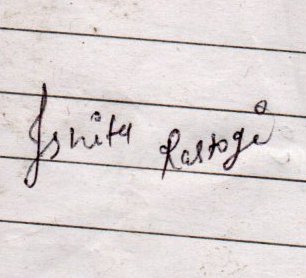 Ishita Rastogi